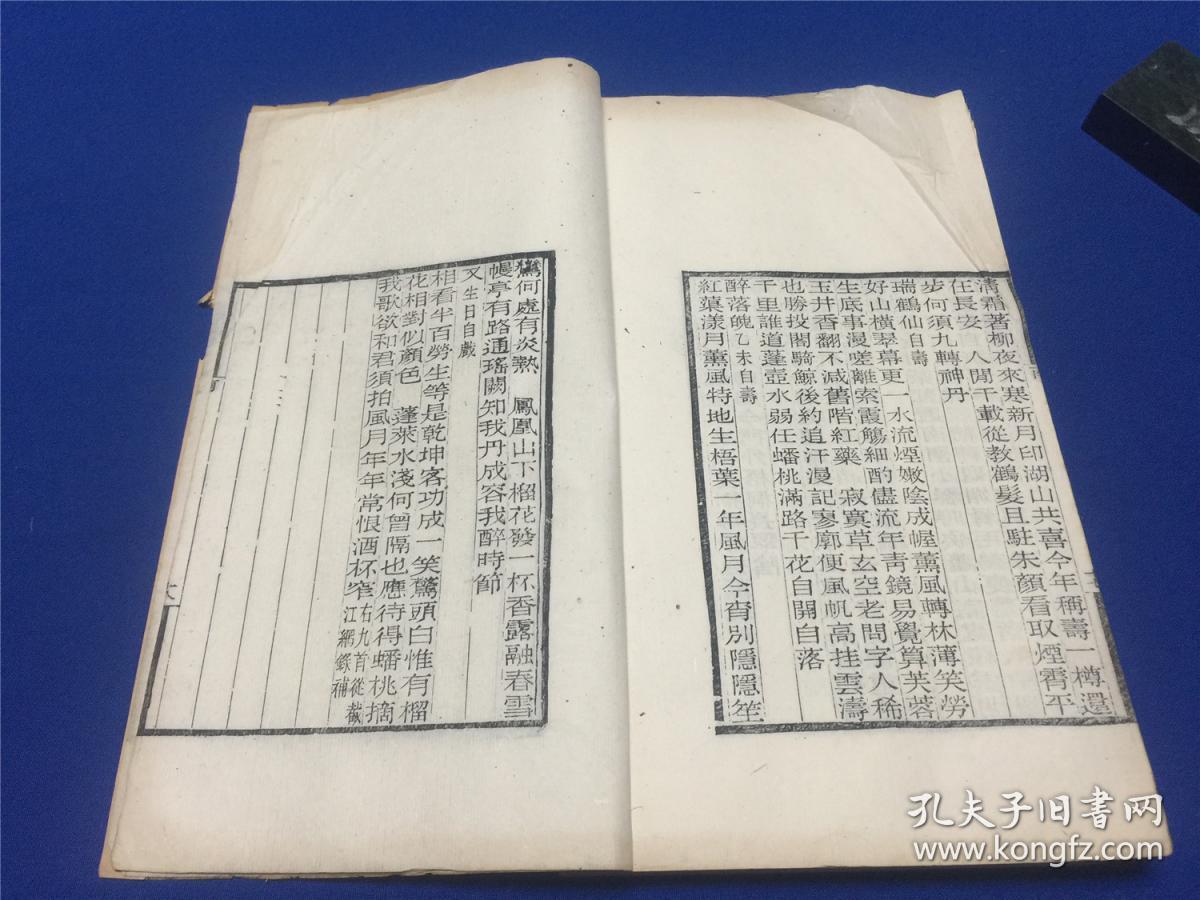 清霜著柳夜來寒新月印湖山共喜今年稱壽一樽還
任長安 人間千載從教鶴髮且駐朱顏看取煙霄平
步何須九轉神丹
瑞鶴仙自壽
好山橫翠幕更一水流煙嫩陰成幄薰風轉林薄笑勞
生底事漫嗟離索霞觴細酌儘流年靑鏡易覺算芙蓉
玉井香翻不減舊階紅藥 寂寞草玄空老問字人稀
也勝投閣騎鯨後約追汗漫記寥廓便風帆高挂雲濤
千里誰道蓬壺水弱任蟠桃滿路千花自開自落
醉落魄乙未自壽
紅蕖漾月薰風特地生梧葉一年風月今宵別隱隱笙
鸞何處有炎熱 鳳凰山下榴花發一杯香露融春雪
幔亭有路通瑤闕知我丹成容我醉時節
又生日自戲
相看半百勞生等是乾坤客功成一笑驚頭白惟有榴
花相對似顏色 蓬萊水淺何曾隔也應待得蟠桃摘
我歌欲和君須拍風月年年常恨酒杯窄右九首從截
江網錄補
六
孔夫子旧书网
www.kongfz.com